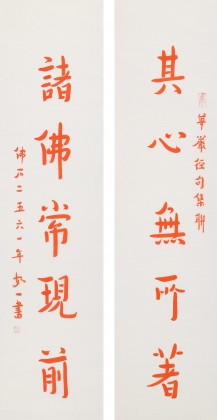 華嚴經句集聯
其心無所著
諸佛常現前
佛曆二五六一年 一書